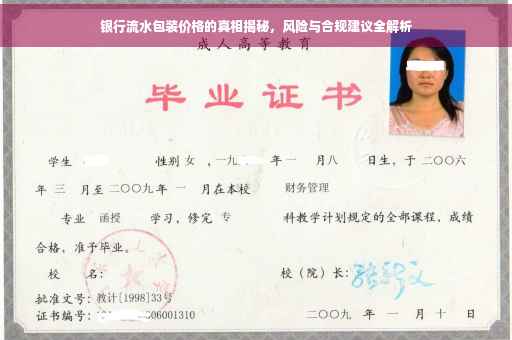 银行流水包装价格的真相揭秘，风险与合规建议全解析
成人高等教育
毕业证书
学生 性别 女 ，一九 年 一 月 八 日生，于 二〇〇六
年 三 月至 二〇〇九 年 一 月在本校 财务管理
专业 函授 学习，修完 专 科教学计划规定的全部课程，成绩
合格，准予毕业。
校 名： 校（院）长：
批准文号：教计[1998]33号
证书编号： 06001310 二〇〇九 年 一 月 十 日